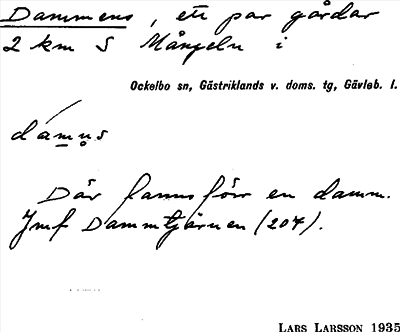 Dammens, ett par gårdar
2 km S Mångeln i
Ockelbo sn, Gästriklands v. doms. tg, Gävleb. l.
dámu̥s
Där fanns förr en damm.
Jmf Dammtjärnen (204).
LARS LARSSON 1935